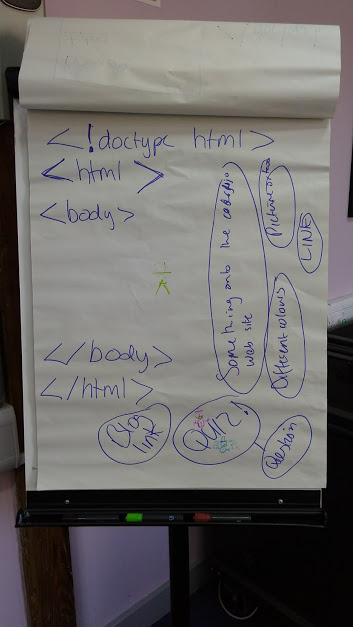 <!doctype html>
<html>
<body>
</body>
</html>
Something onto the
web site
Picture onto
LINK
Different colours
Blog
link
QUIZ!
Question